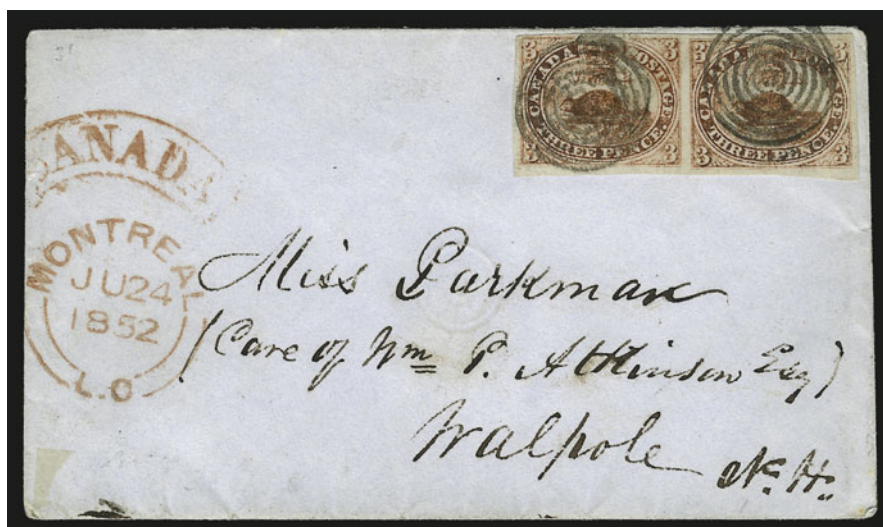 3 CANADA POSTAGE 3
3 THREE PENCE. 3
3 CANADA POSTAGE. 3
3 THREE PENCE. 3
CANADA
MONTREAL
JU 24
1852
L.C
Miss Parkman
(Care of Wm P. Atkinson Esq)
Walpole
N. H.